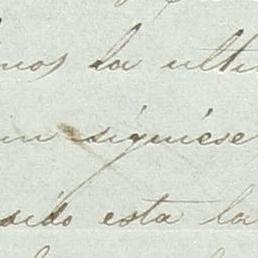 mos la ulti
in siguiése
sido esta la